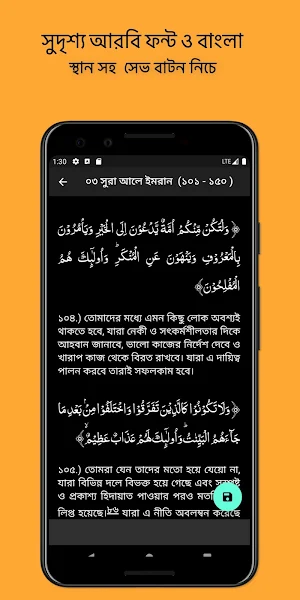 সুদৃশ্য আরবি ফন্ট ও বাংলা
স্থান সহ সেভ বাটন নিচে
1:30
LTE
০৩ সুরা আলে ইমরান (১০১ - ১৫০ )
﴿ وَلْتَكُن مِّنكُمْ أُمَّةٌ يَدْعُوْنَ إِلَى الْخَيْرِ وَيَأْمُرُوْنَ
بِالْمَعْرُوْفِ وَيَنْهَوْنَ عَنِ الْمُنْكَرِ ۗ وَأُولٰٓئِكَ هُمُ
الْمُفْلِحُوْنَ ﴾
১০৪.) তোমাদের মধ্যে এমন কিছু লোক অবশ্যই
থাকতে হবে, যারা নেকী ও সৎকর্মশীলতার দিকে
আহবান জানাবে, ভালো কাজের নির্দেশ দেবে ও
খারাপ কাজ থেকে বিরত রাখবে। যারা এ দায়িত্ব
পালন করবে তারাই সফলকাম হবে।
﴿ وَلَا تَكُوْنُوْا كَالَّذِيْنَ تَفَرَّقُوْا وَاخْتَلَفُوْا مِنْۢ بَعْدِ مَا
جَآءَهُمُ الْبَيِّنٰتُ ۗ وَأُولٰٓئِكَ لَهُمْ عَذَابٌ عَظِيْمٌ ۙ ﴾
১০৫.) তোমরা যেন তাদের মতো হয়ে যেয়ো না,
যারা বিভিন্ন দলে বিভক্ত হয়ে গেছে এবং
ও প্রকাশ্য হিদায়াত পাওয়ার পরও
লিপ্ত হয়েছে। যারা এ নীতি অবলম্বন করেছে